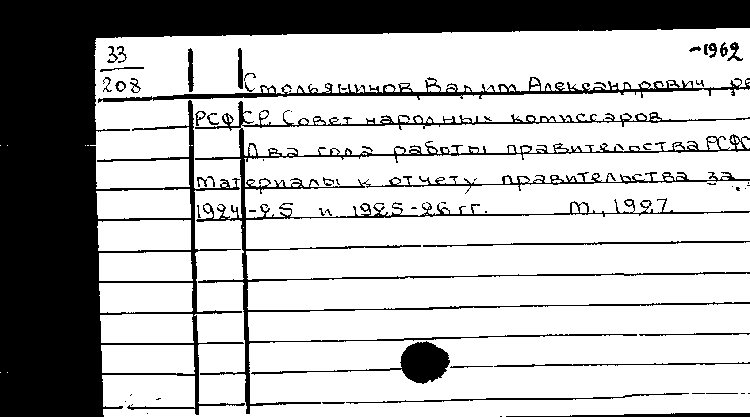 33
208
-1962
Стольянинов, Вадим Александрович, ре
РСФСР. Совет народных комиссаров.
Два года работы правительства РСФС
Материалы к отчету правительства за
1924-25 и 1925-26 гг. М., 1927.